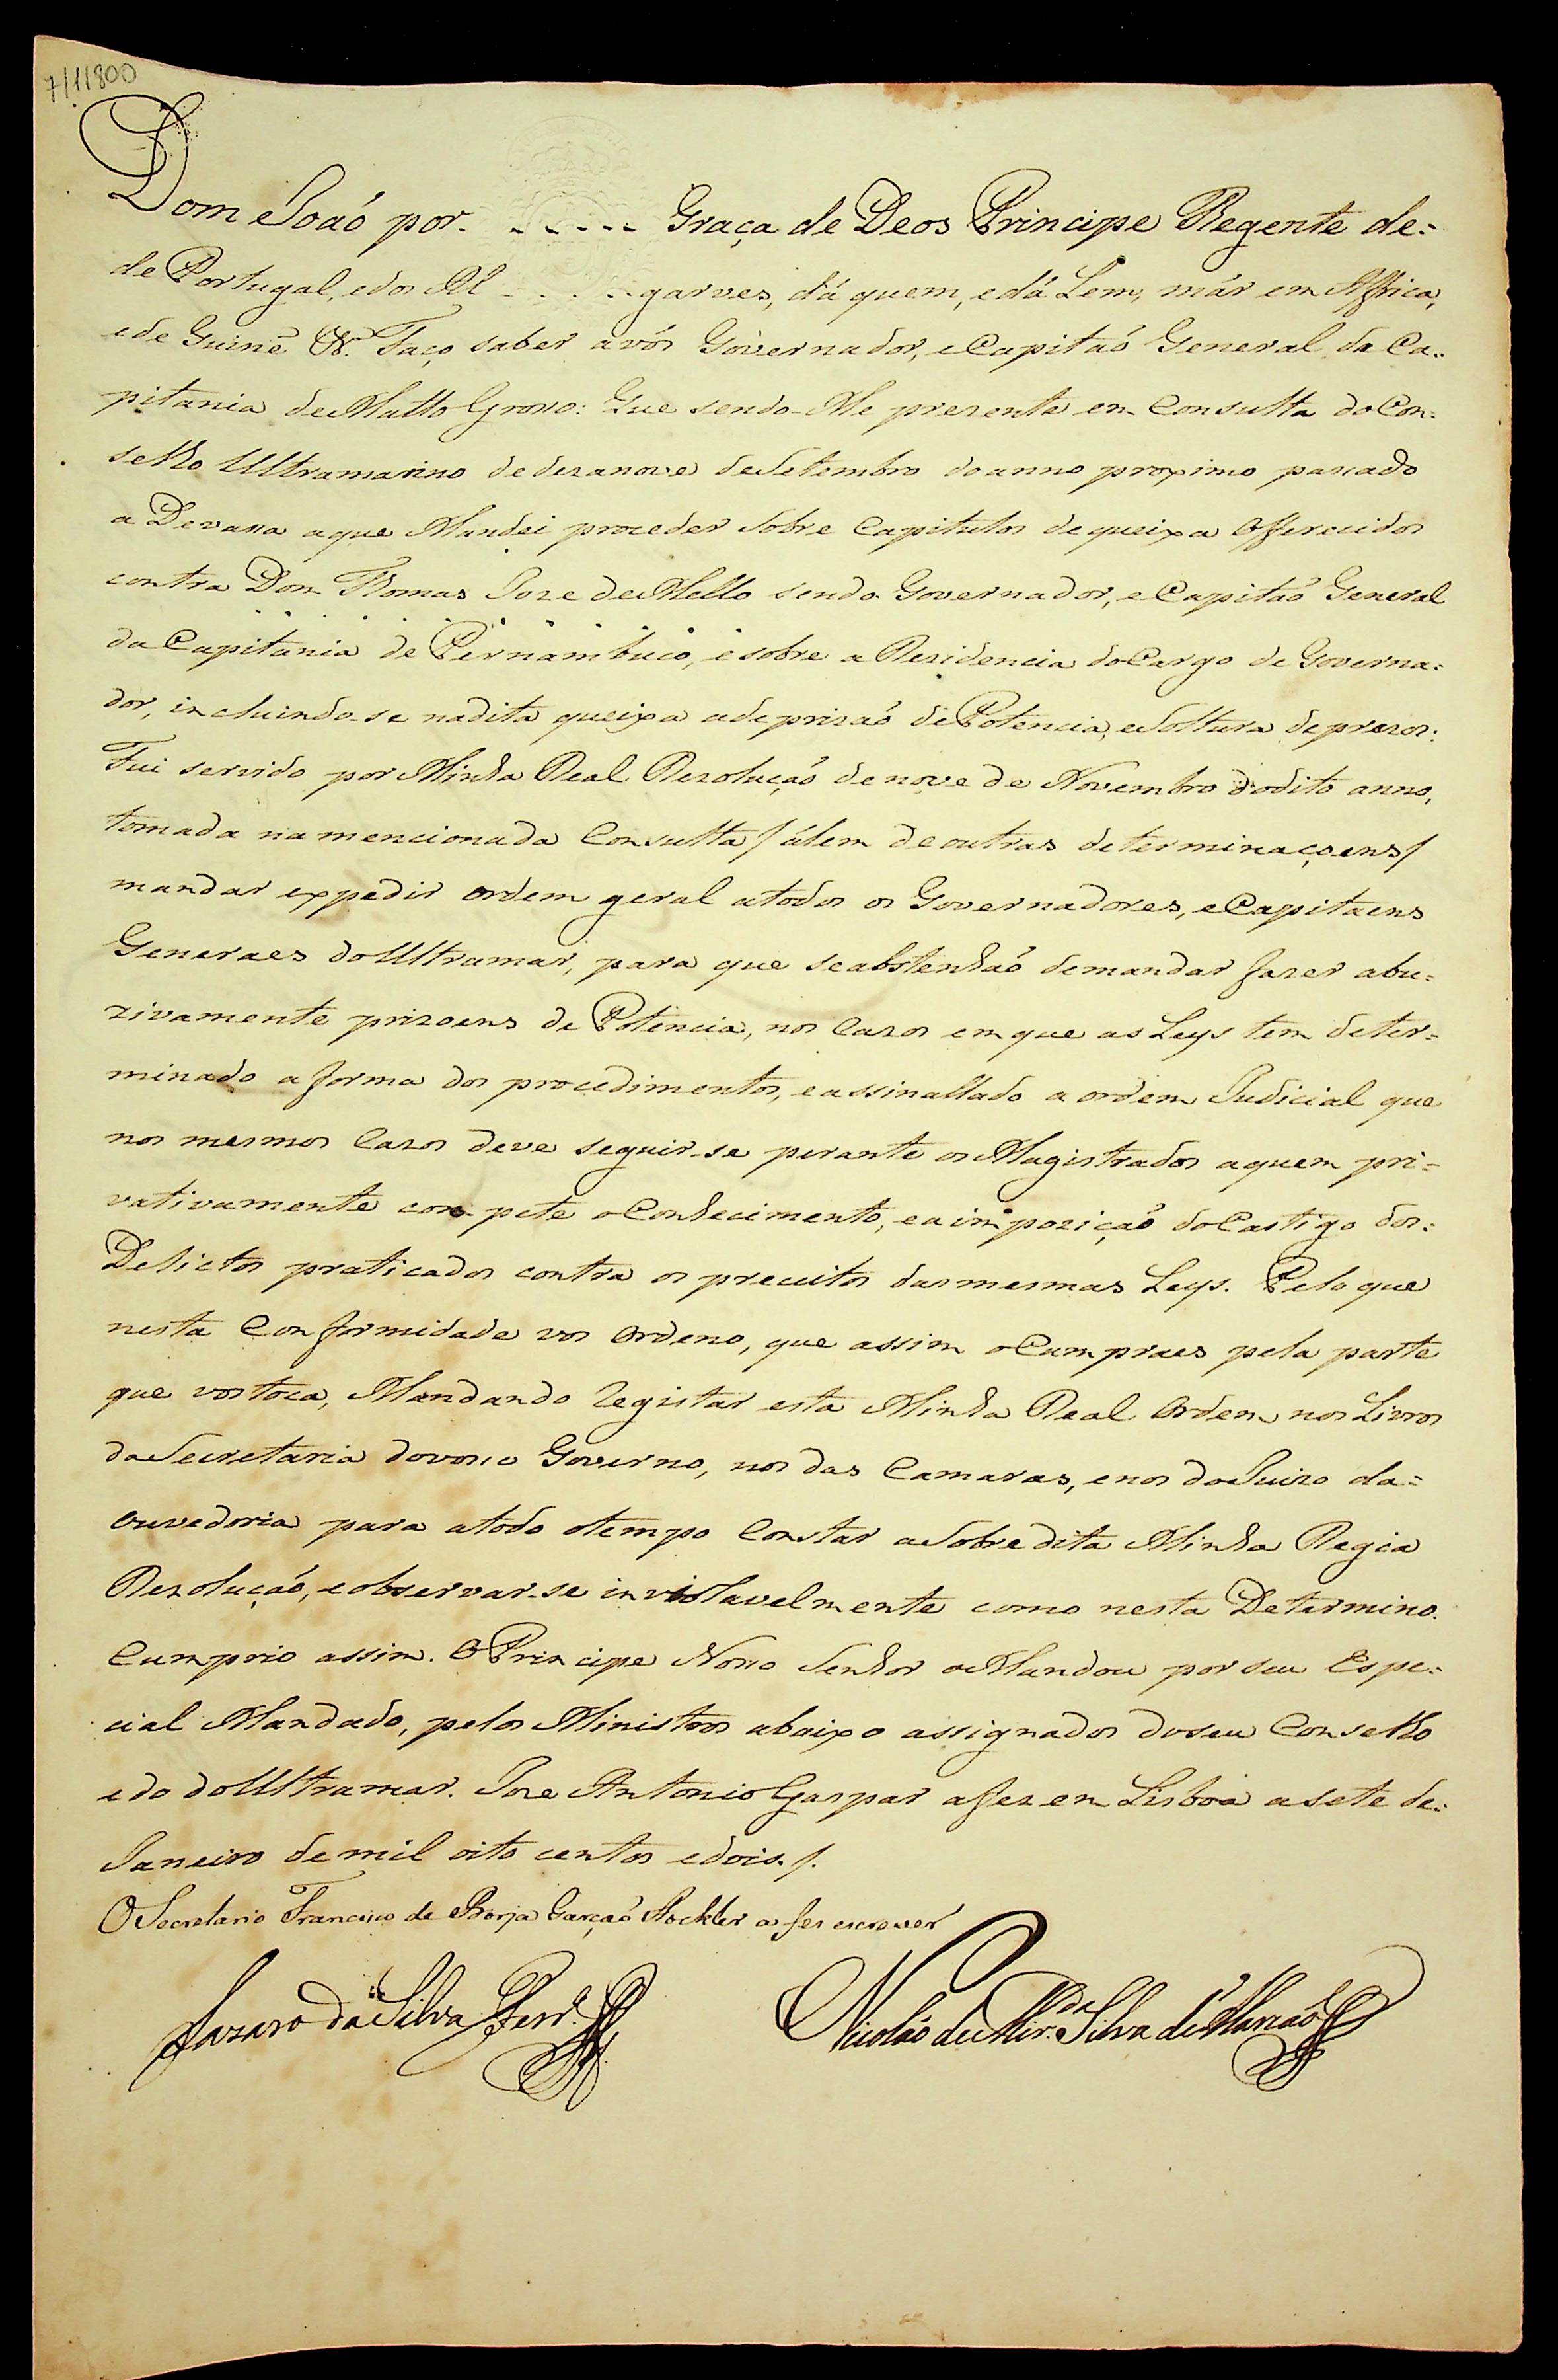 7/1/1800
Dom João por. - - - - Graça de Deos Principe Regente de=
de Portugal, e dos Al - - - - garves, dá quem, e dá Lem, már em Affrica,
e de Guiné &.ª Faço saber a vós Governador, e Capitaó General da Ca=
pitania de Matto Grosso: Que sendo-Me prezente em Consulta do Con=
selho Ultramarino de dezanove de Setembro do anno proximo passado
a Devassa a que Mandei proceder sobre Capitulos de queixa Offerecidos
contra Dom Thomas Joze de Mello sendo Governador, e Capitaó General
da Capitania de Pernambuco, e sobre a Rezidencia do Cargo de Governa=
dor, incluindo-se na dita queixa a de prizaó de Potencia, e Soltura de prezos:
Fui servido por Minha Real Rezoluçaó de nove de Novembro do dito anno,
tomada na mencionada Consulta / álem de outras determinaçoens /
mandar expedir ordem geral a todos os Governadores, e Capitaens
Generaes do Ultramar, para que se abstenhaó de mandar fazer abu=
zivamente prizoens de Potencia, nos Cazos em que as Leys tem deter=
minado a forma dos procedimentos, e assinallado a ordem Judicial que
nos mesmos Cazos deve seguir-se perante os Magistrados a quem pri=
vativamente compete o Conhecimento, e a impoziçaó do Castigo dos=
Delictos praticados contra os preceitos das mesmas Leys. Pelo que
nesta Conformidade vos Ordeno, que assim o Cumpraes pela parte
que vos toca, Mandando Registar esta Minha Real Ordem nos Livros
da Secretaria do vosso Governo, nos das Camaras, e nos do Juizo da=
Ouvedoria para a todo o tempo Constar a Sobredita Minha Regia
Rezoluçaó, e observar-se inviolavelmente como nesta Determino.
Cumprio assim. O Principe Nosso Senhor o Mandou por seu Espe=
cial Mandado, pelos Ministros abaixo assignados do seu Conselho
e do do Ultramar. Joze Antonio Gaspar a fez em Lisboa a sete de=
Janeiro de mil oito centos e dois. /.
O Secretario Francisco de Borja Garçaó Stockler a fez escrever
Lazaro da Silva Ferr.ª Nicoláo de Mir.da Silva de Alarcaó